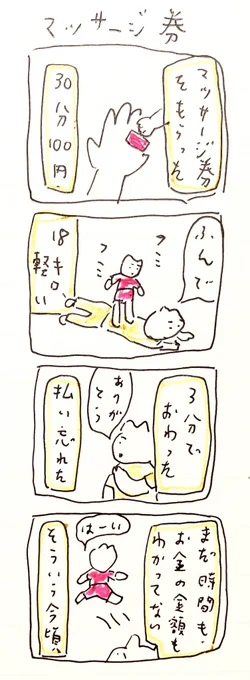 マッサージ券
マッサージ券
をもらった
30分100円
ふんで
18キロ
軽い
3分で
おわった
ありが
とう
払い忘れた
まだ時間も
お金の金額も
わかってない
はーい
そういう今頃